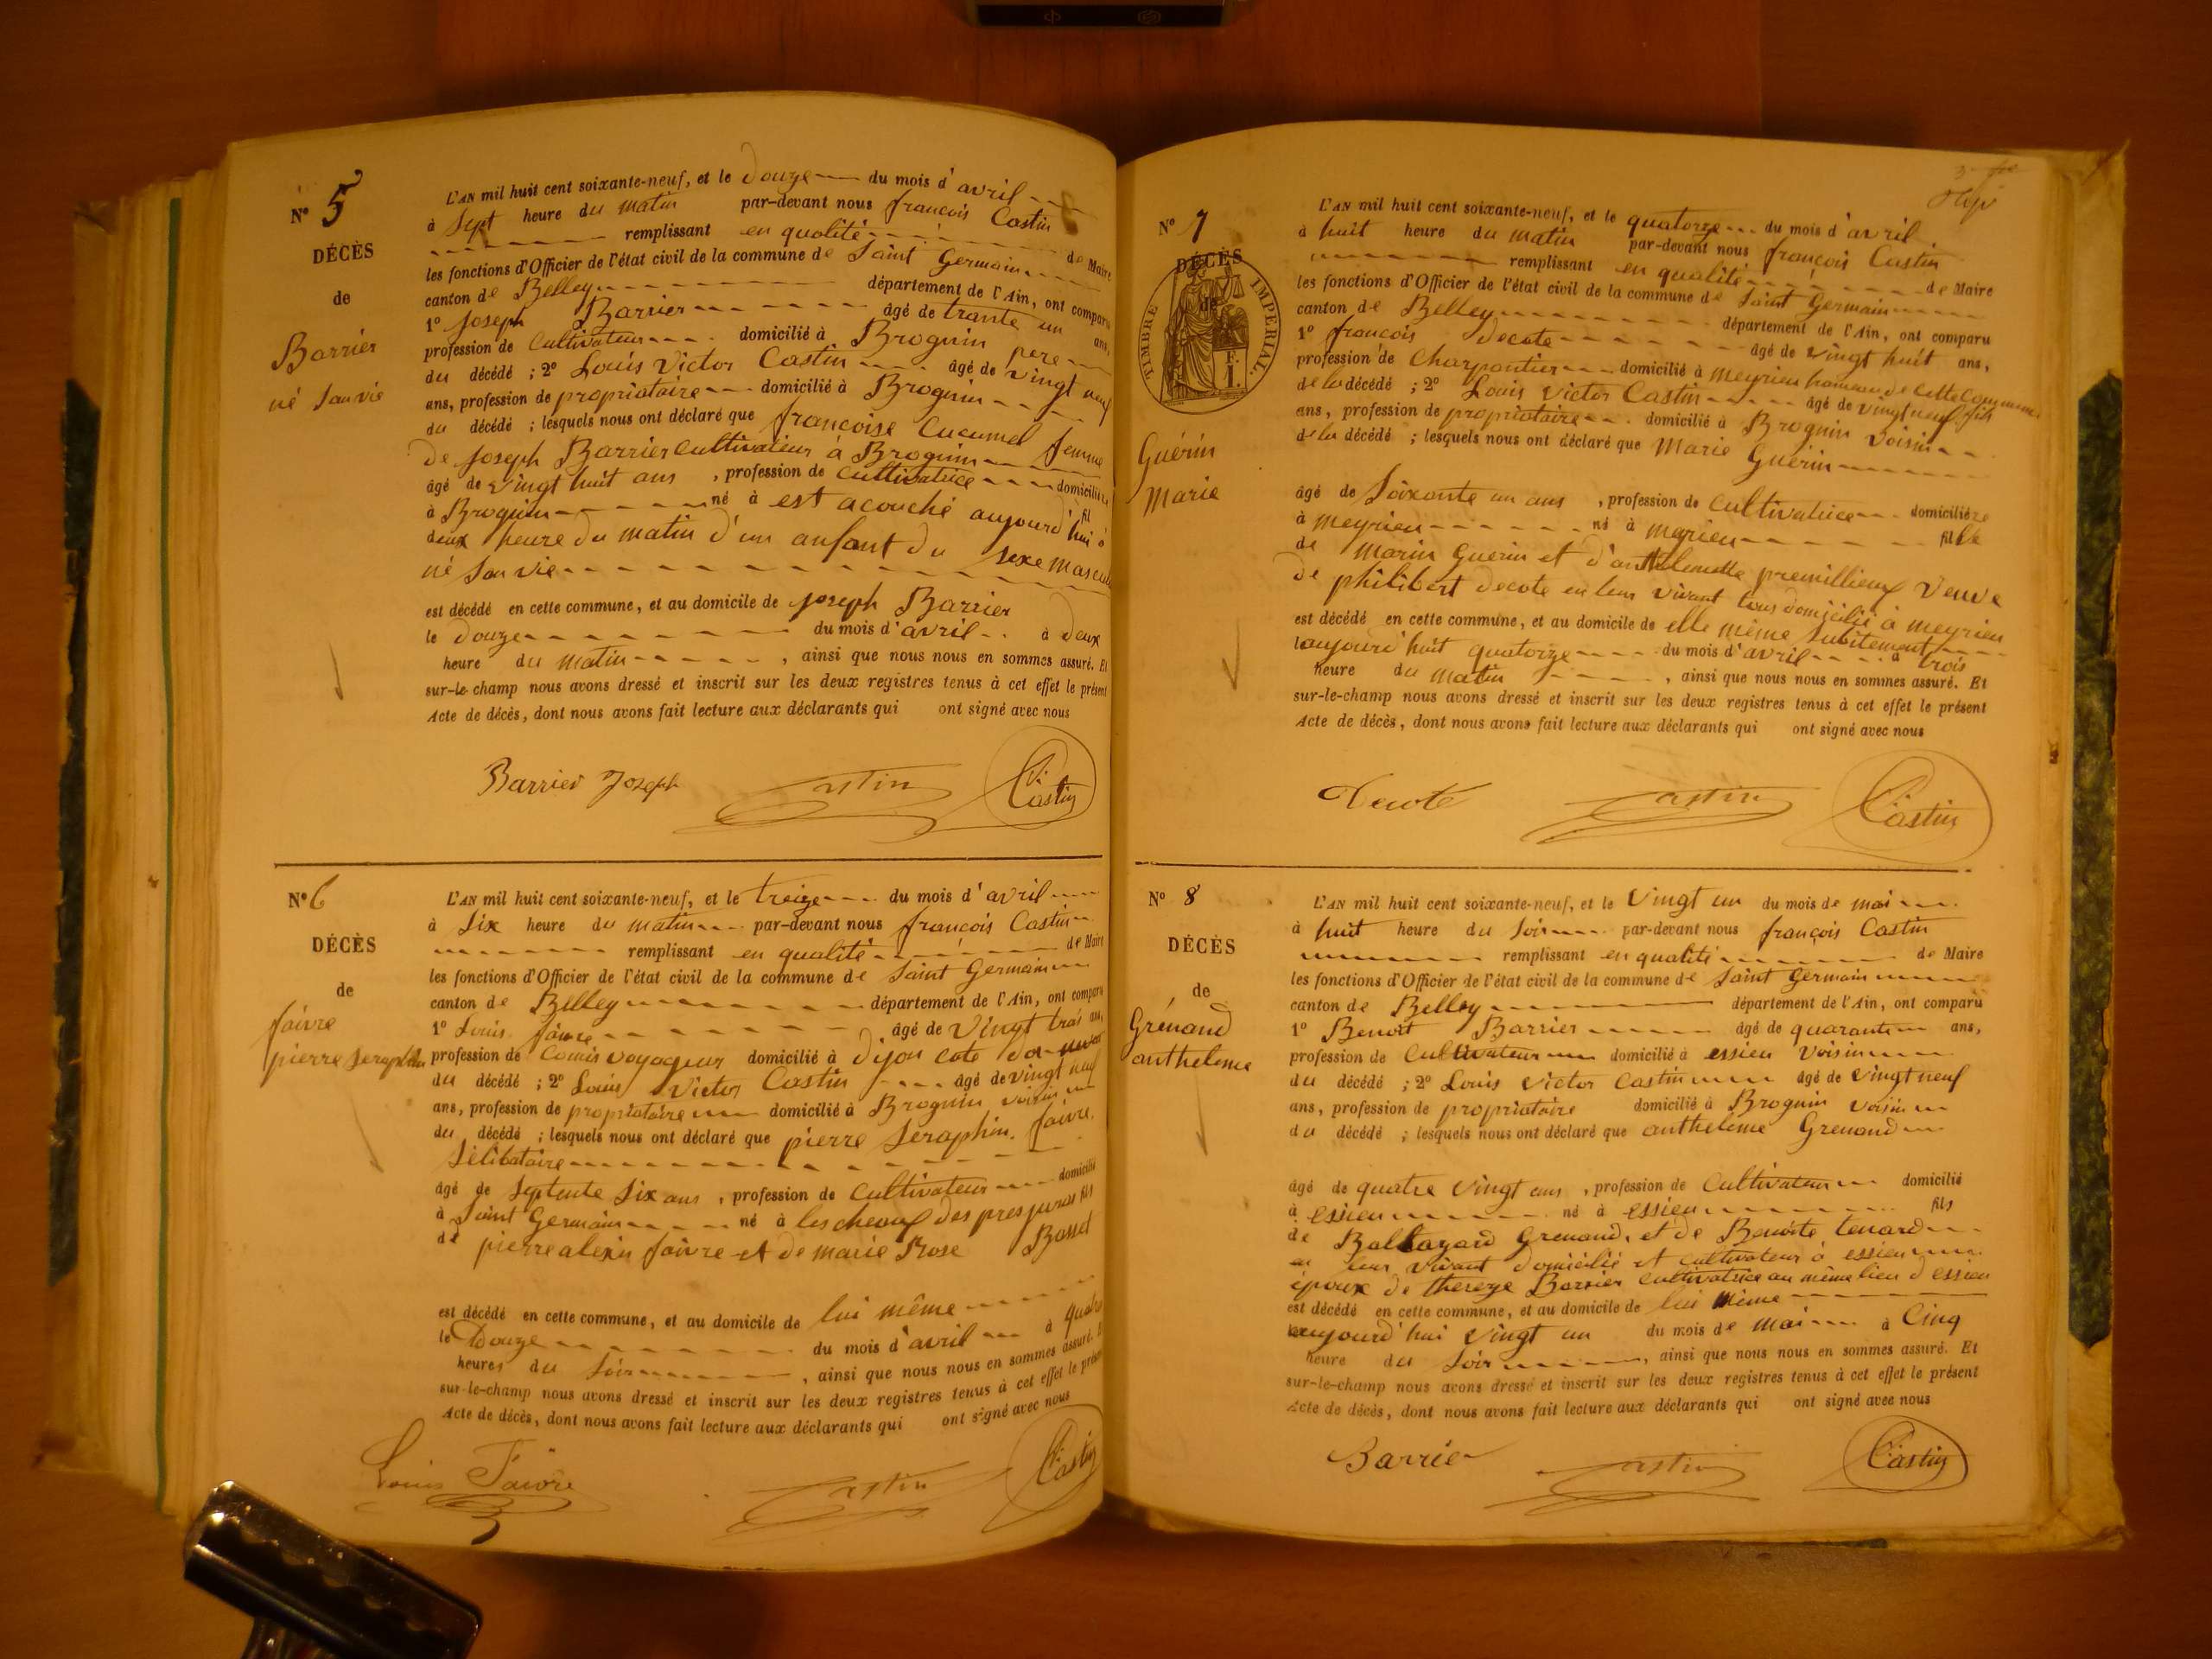 N° 5
DÉCÈS
de
Barrier
né san vie
L'AN mil huit cent soixante-neuf, et le douze du mois d'avril
à sept heure du matin par-devant nous françois Castin
remplissant en qualité de Maire
les fonctions d'Officier de l'état civil de la commune de Saint Germain
canton de Belley département de l'Ain, ont comparu
1° Joseph Barrier âgé de trante un ans,
profession de Cultivateur domicilié à Brognin pere
du décédé ; 2° Louis Victor Castin âgé de vingt neuf
ans, profession de propriataire domicilié à Brognin
du décédé ; lesquels nous ont déclaré que françoise Cucumel femme
de Joseph Barrier Cultivateur à Brognin
âgé de vingt huit ans , profession de Cultivatrice domicilière
à Brognin né à est acouché aujourd'hui à fil
deux heure du matin d'un anfant du sexe mascul
né san vie
est décédé en cette commune, et au domicile de joseph Barrier
le douze du mois d'avril à deux
heure du matin , ainsi que nous nous en sommes assuré. Et
sur-le-champ nous avons dressé et inscrit sur les deux registres tenus à cet effet le présent
Acte de décès, dont nous avons fait lecture aux déclarants qui ont signé avec nous
Barrier Joseph Castin Castin
N° 6
DÉCÈS
de
faivre
pierre seraphin
L'AN mil huit cent soixante-neuf, et le treize du mois d'avril
à six heure du matin par-devant nous françois Castin
remplissant en qualité de Maire
les fonctions d'Officier de l'état civil de la commune de Saint Germain
canton de Belley département de l'Ain, ont comparu
1° Louis faivre âgé de vingt trois ans,
profession de Comis voyageur domicilié à dijon cote dor
du décédé ; 2° Louis Victor Castin âgé de vingt neuf
ans, profession de propriataire domicilié à Brognin voisin
du décédé ; lesquels nous ont déclaré que pierre seraphin faivre
sélibataire
âgé de septente six ans , profession de Cultivateur domicilié
à Saint Germain né à les cheauf des pres jura fils
de pierre alexis faivre et de marie Rose Basset
est décédé en cette commune, et au domicile de lui même
le Douze du mois d'avril à quatre
heures du soir , ainsi que nous nous en sommes assuré. Et
sur-le-champ nous avons dressé et inscrit sur les deux registres tenus à cet effet le présent
Acte de décès, dont nous avons fait lecture aux déclarants qui ont signé avec nous
Louis Faivre Castin Castin
N° 7
DÉCÈS
de
TIMBRE IMPERIAL
Guérin
Marie
L'AN mil huit cent soixante-neuf, et le quatorze du mois d'avril
à huit heure du matin par-devant nous françois Castin
remplissant en qualité de Maire
les fonctions d'Officier de l'état civil de la commune de Saint Germain
canton de Belley département de l'Ain, ont comparu
1° françois decote âgé de vingt huit ans,
profession de Charpantier domicilié à meyrieu hameau de cette commune fils
de la décédé ; 2° Louis Victor Castin âgé de vingt neuf
ans, profession de propriataire domicilié à Brognin voisin
de la décédé ; lesquels nous ont déclaré que Marie Guérin
âgé de soixante un ans , profession de Cultivatrice domicilière
à meyrieu né à meyrieu fille
de Marin Guerin et d'anthelmette premillieux veuve
de philibert decote en leur vivant tous domicilié à meyrieu
est décédé en cette commune, et au domicile de elle même subitement
aujourd'huit quatorze du mois d'avril à trois
heure du matin , ainsi que nous nous en sommes assuré. Et
sur-le-champ nous avons dressé et inscrit sur les deux registres tenus à cet effet le présent
Acte de décès, dont nous avons fait lecture aux déclarants qui ont signé avec nous
Decote Castin Castin
N° 8
DÉCÈS
de
Grénand
anthelme
L'AN mil huit cent soixante-neuf, et le vingt un du mois de mai
à huit heure du soir par-devant nous françois Castin
remplissant en qualité de Maire
les fonctions d'Officier de l'état civil de la commune de Saint Germain
canton de Belley département de l'Ain, ont comparu
1° Benoit Barrier âgé de quarante ans,
profession de Cultivateur domicilié à essieu voisin
du décédé ; 2° Louis Victor Castin âgé de vingt neuf
ans, profession de propriataire domicilié à Brognin voisin
du décédé ; lesquels nous ont déclaré que antheleme Grenand
âgé de quatre vingt ans , profession de Cultivateur domicilié
à essieu né à essieu fils
de Baltazard Grenand, et de Benoite tenard
en leur vivant domicilié et cultivateur à essieu
époux de thereze Barrier cultivatrice au même lieu d'essieu
est décédé en cette commune, et au domicile de lui même
aujourd'hui vingt un du mois de mai à Cinq
heure du soir , ainsi que nous nous en sommes assuré. Et
sur-le-champ nous avons dressé et inscrit sur les deux registres tenus à cet effet le présent
Acte de décès, dont nous avons fait lecture aux déclarants qui ont signé avec nous
Barrier Castin Castin